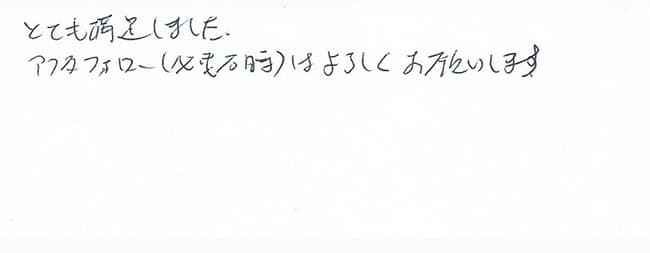 とても満足しました.
アフタフォロー(必要な時)はよろしくお願いします